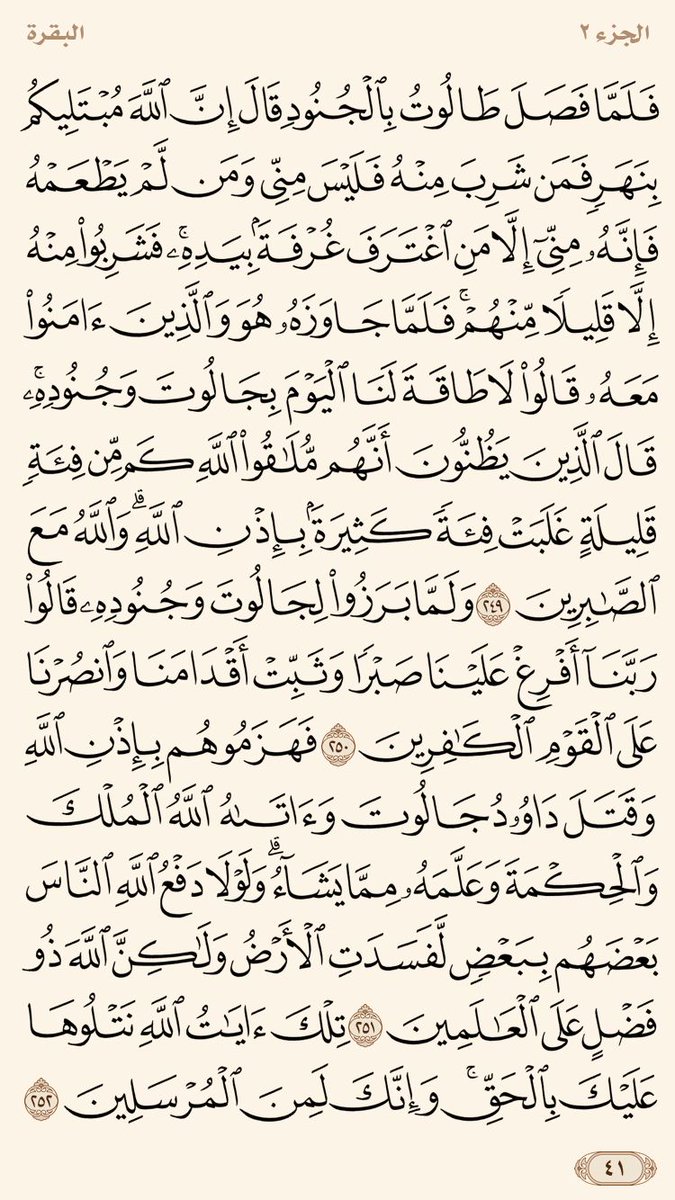 الجزء ٢ البقرة
فَلَمَّا فَصَلَ طَالُوتُ بِٱلۡجُنُودِ قَالَ إِنَّ ٱللَّهَ مُبۡتَلِيكُم
بِنَهَرٖ فَمَن شَرِبَ مِنۡهُ فَلَيۡسَ مِنِّي وَمَن لَّمۡ يَطۡعَمۡهُ
فَإِنَّهُۥ مِنِّيٓ إِلَّا مَنِ ٱغۡتَرَفَ غُرۡفَةَۢ بِيَدِهِۦۚ فَشَرِبُواْ مِنۡهُ
إِلَّا قَلِيلٗا مِّنۡهُمۡۚ فَلَمَّا جَاوَزَهُۥ هُوَ وَٱلَّذِينَ ءَامَنُواْ
مَعَهُۥ قَالُواْ لَا طَاقَةَ لَنَا ٱلۡيَوۡمَ بِجَالُوتَ وَجُنُودِهِۦۚ
قَالَ ٱلَّذِينَ يَظُنُّونَ أَنَّهُم مُّلَٰقُواْ ٱللَّهِ كَم مِّن فِئَةٖ
قَلِيلَةٍ غَلَبَتۡ فِئَةٗ كَثِيرَةَۢ بِإِذۡنِ ٱللَّهِۗ وَٱللَّهُ مَعَ
ٱلصَّٰبِرِينَ ٢٤٩ وَلَمَّا بَرَزُواْ لِجَالُوتَ وَجُنُودِهِۦ قَالُواْ
رَبَّنَآ أَفۡرِغۡ عَلَيۡنَا صَبۡرٗا وَثَبِّتۡ أَقۡدَامَنَا وَٱنصُرۡنَا
عَلَى ٱلۡقَوۡمِ ٱلۡكَٰفِرِينَ ٢٥٠ فَهَزَمُوهُم بِإِذۡنِ ٱللَّهِ
وَقَتَلَ دَاوُۥدُ جَالُوتَ وَءَاتَىٰهُ ٱللَّهُ ٱلۡمُلۡكَ
وَٱلۡحِكۡمَةَ وَعَلَّمَهُۥ مِمَّا يَشَآءُۗ وَلَوۡلَا دَفۡعُ ٱللَّهِ ٱلنَّاسَ
بَعۡضَهُم بِبَعۡضٖ لَّفَسَدَتِ ٱلۡأَرۡضُ وَلَٰكِنَّ ٱللَّهَ ذُو
فَضۡلٍ عَلَى ٱلۡعَٰلَمِينَ ٢٥١ تِلۡكَ ءَايَٰتُ ٱللَّهِ نَتۡلُوهَا
عَلَيۡكَ بِٱلۡحَقِّۚ وَإِنَّكَ لَمِنَ ٱلۡمُرۡسَلِينَ ٢٥٢
٤١